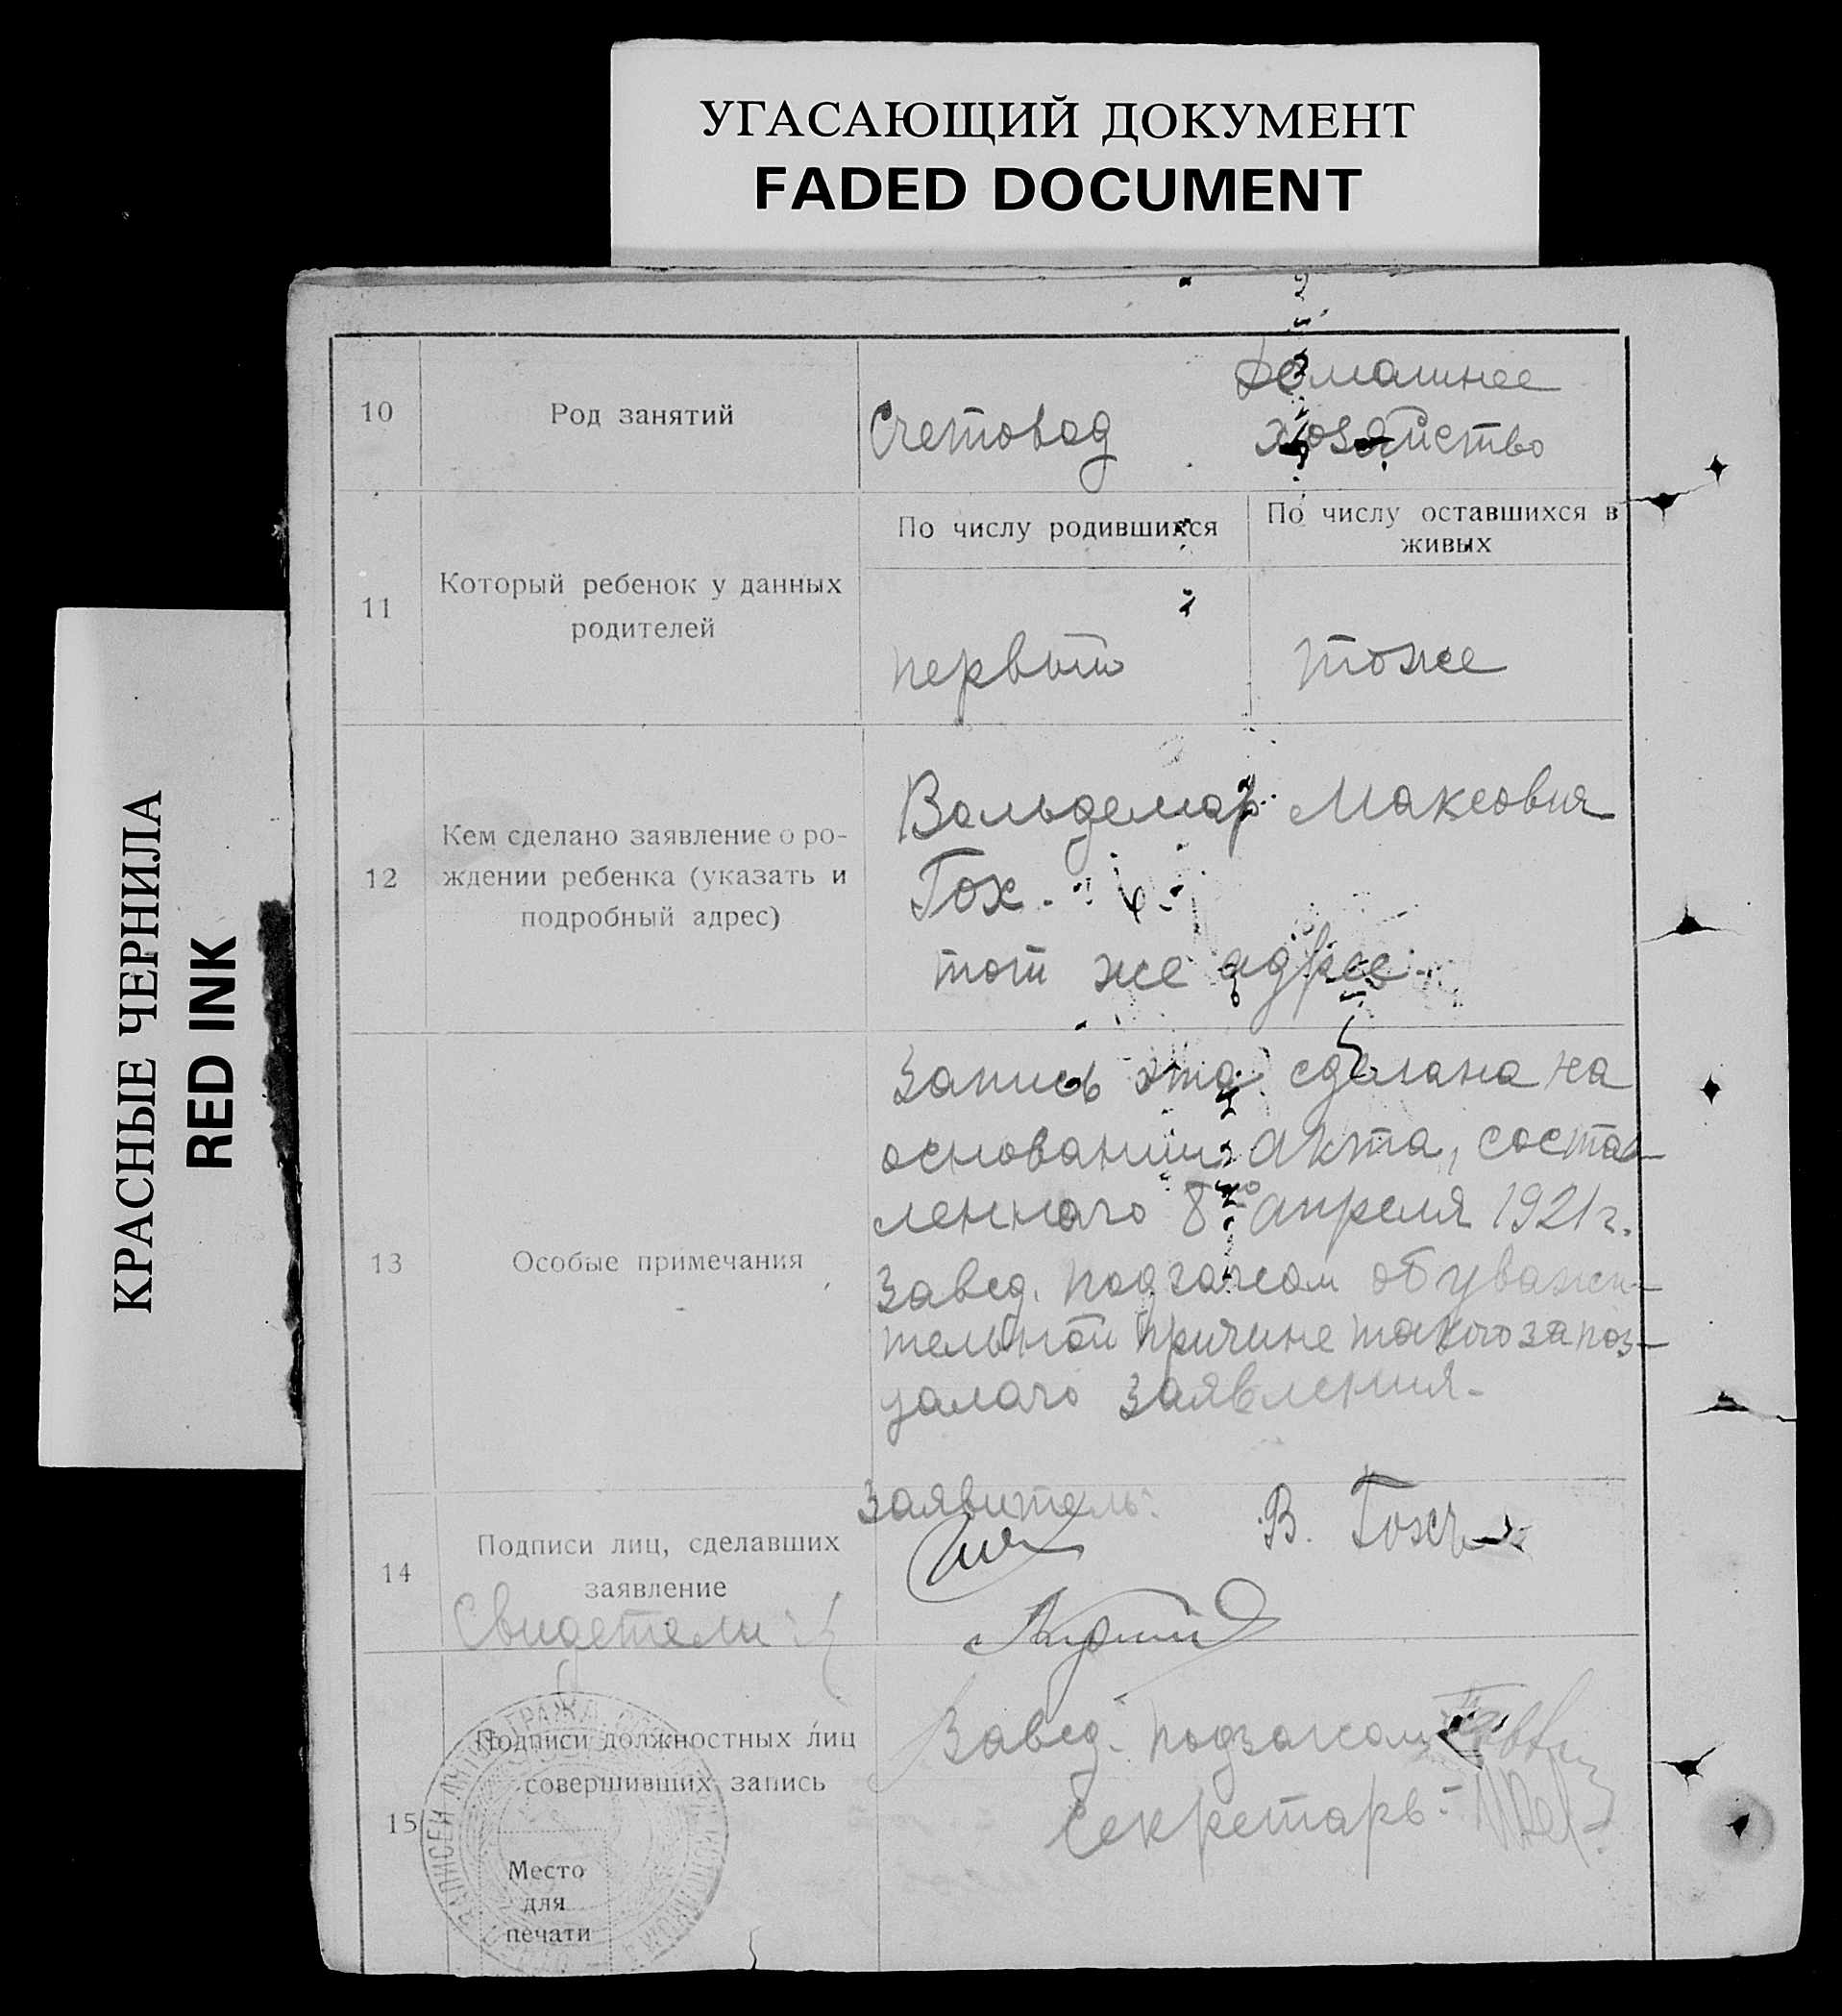 УГАСАЮЩИЙ ДОКУМЕНТ
FADED DOCUMENT
КРАСНЫЕ ЧЕРНИЛА
RED INK
10
Род занятий
Счетовод
Домашнее
хозяйство
11
Который ребенок у данных
родителей
По числу родившихся
По числу оставшихся в
живых
первый
тоже
12
Кем сделано заявление о ро-
ждении ребенка (указать и
подробный адрес)
Вольдемар Максович
Гох.
тот же адрес.
13
Особые примечания
Запись эта сделана на
основании акта, состав-
леннаго 8го апреля 1921 г.
Завед. подзагсом об уважи-
тельной причине такого запоз-
далаго заявления.
14
Подписи лиц, сделавших
заявление
Свидетели:
Заявитель:
В. Гохъ
15
Подписи должностных лиц
совершивших запись
Место
для
печати
Завед. подзагсом
Секретарь: